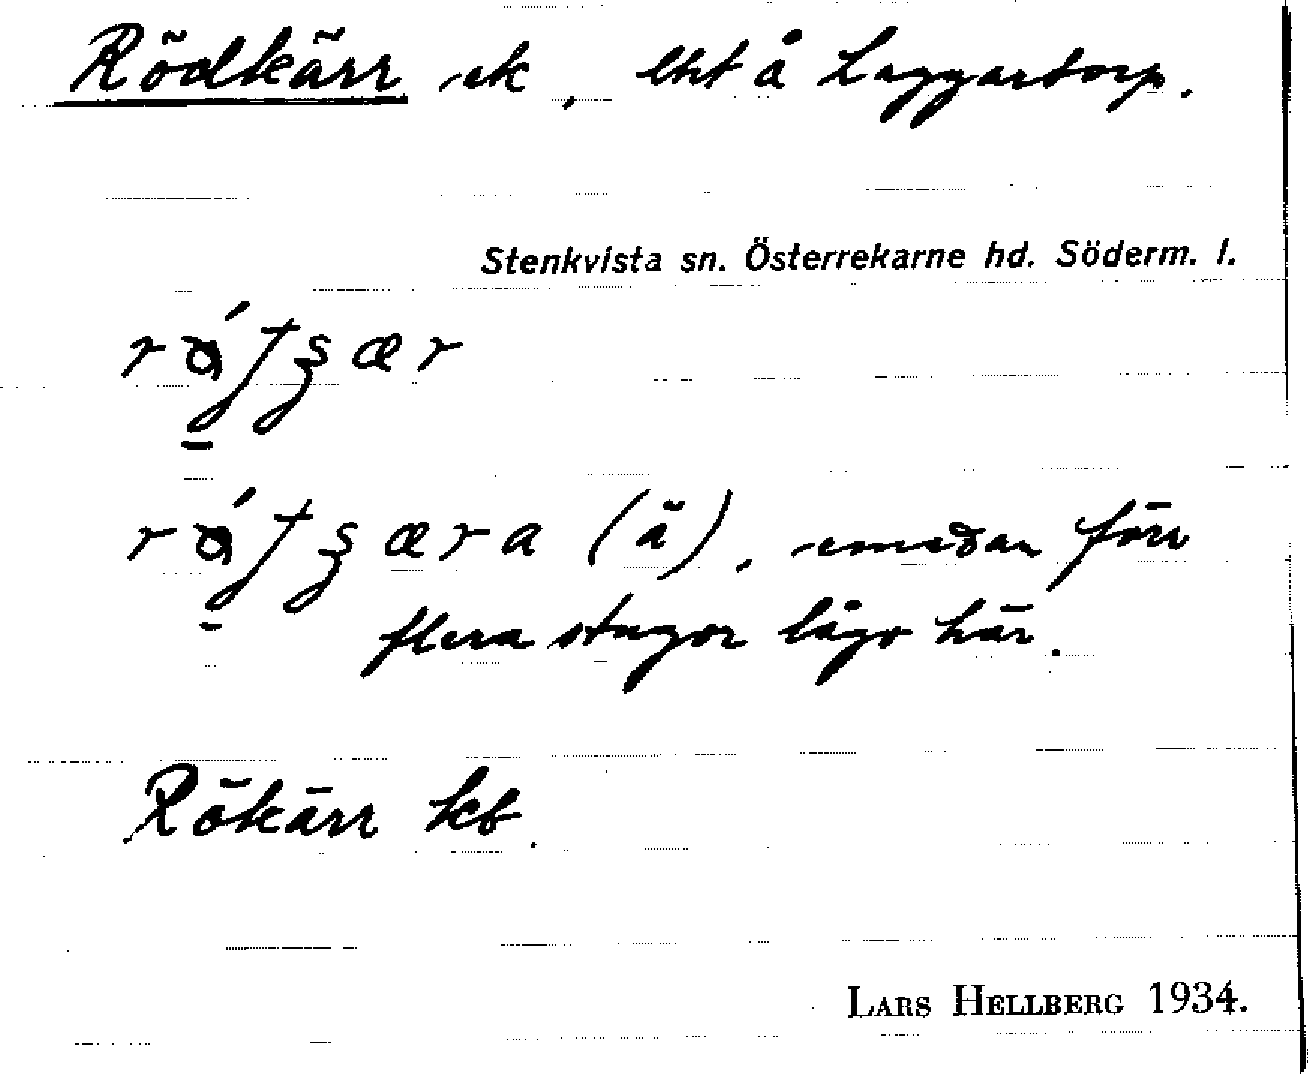 Rödkärr sk, lht å Laggartorp.
Stenkvista sn. Österrekarne hd. Söderm. l.
(ä), emedan förr
flera stugor lågo här.
Rökärr kb.
LARS HELLBERG 1934.